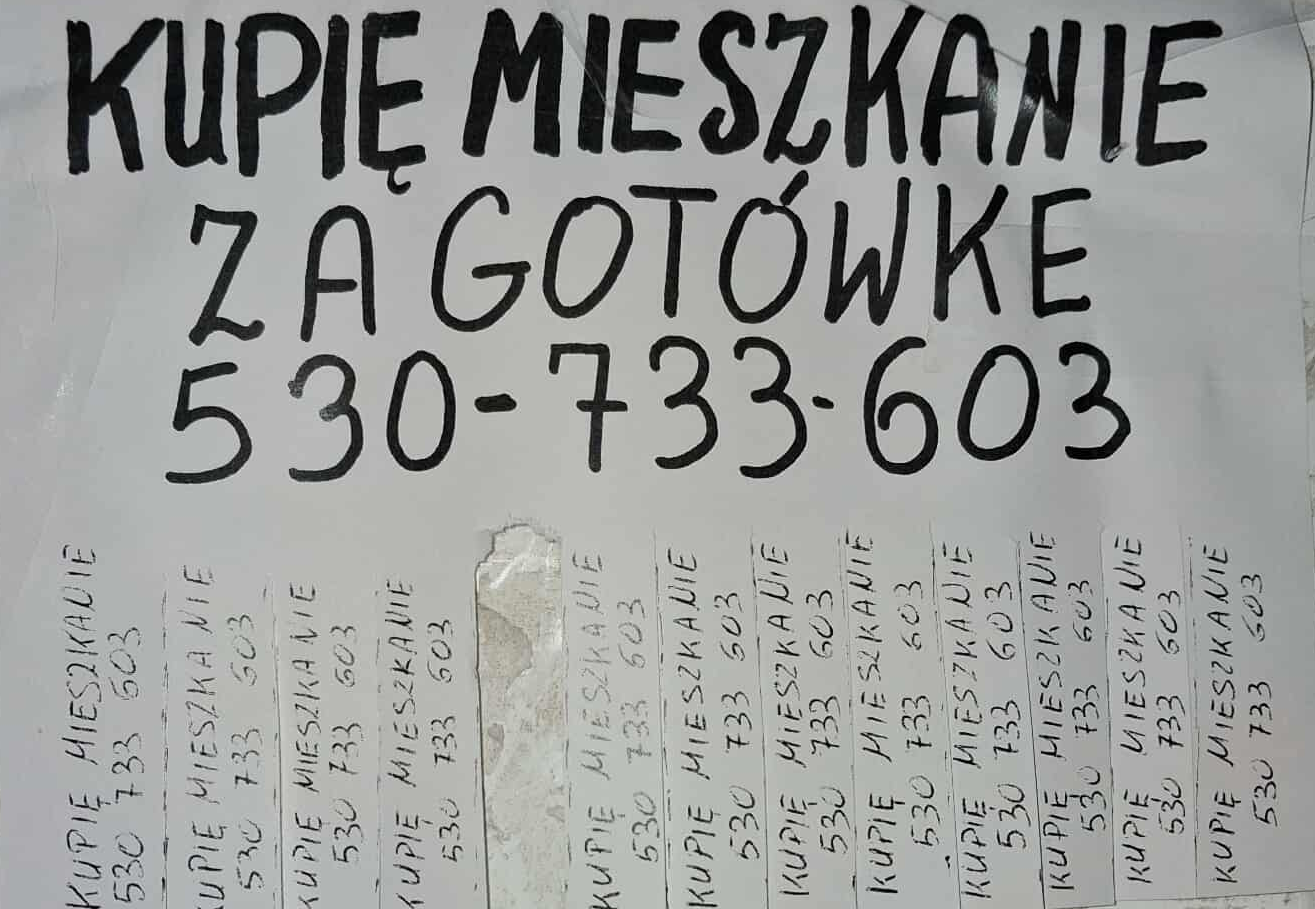 KUPIĘ MIESZKANIE
ZA GOTÓWKE
530-733-603
KUPIĘ MIESZKANIE
530 733 603
KUPIĘ MIESZKANIE
530 733 603
KUPIĘ MIESZKANIE
530 733 603
KUPIĘ MIESZKANIE
530 733 603
KUPIĘ MIESZKANIE
530 733 603
KUPIĘ MIESZKANIE
530 733 603
KUPIĘ MIESZKANIE
530 733 603
KUPIĘ MIESZKANIE
530 733 603
KUPIĘ MIESZKANIE
530 733 603
KUPIĘ MIESZKANIE
530 733 603
KUPIĘ MIESZKANIE
530 733 603
KUPIĘ MIESZKANIE
530 733 603